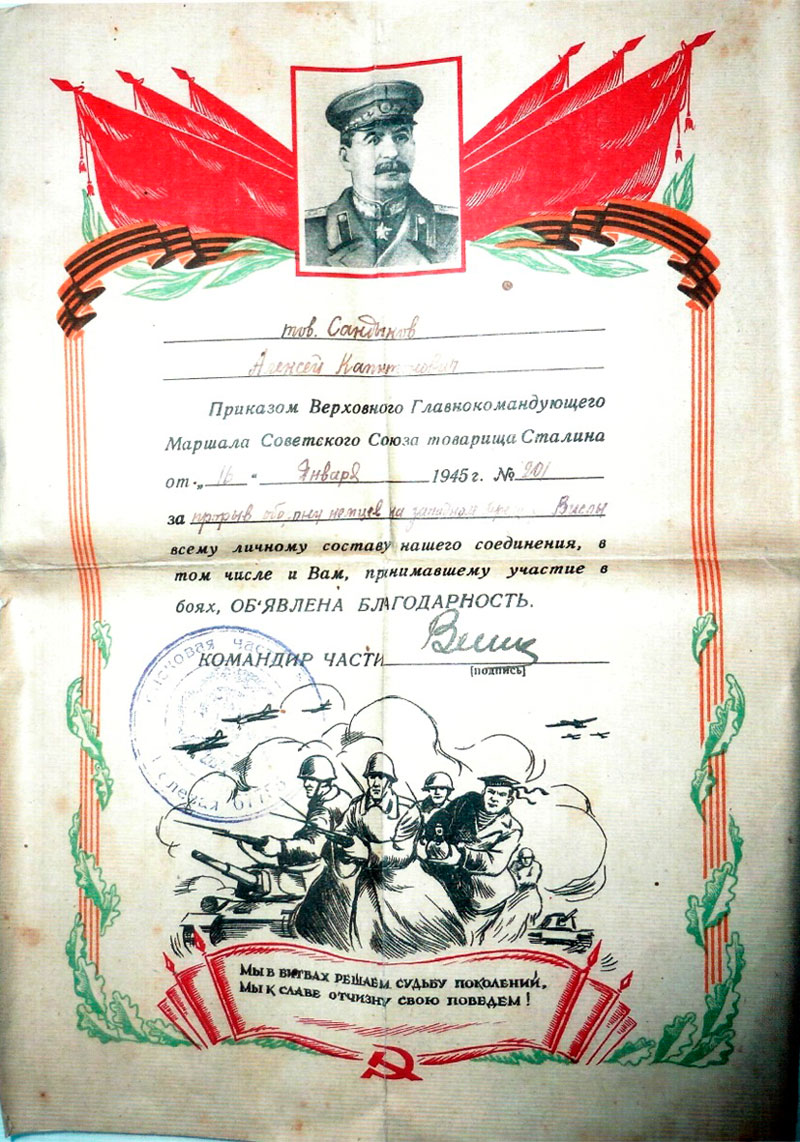 тов. Сандыков
Алексей Капитонович
Приказом Верховного Главнокомандующего
Маршала Советского Союза товарища Сталина
от „16" Января 1945 г. № 201
за прорыв обороны немцев на западном Вислы
всему личному составу нашего соединения, в
том числе и Вам, принимавшему участие в
боях, ОБ'ЯВЛЕНА БЛАГОДАРНОСТЬ.
КОМАНДИР ЧАСТИ
(подпись)
Полевая почта
Мы в битвах решаем судьбу поколений,
Мы к славе отчизну свою поведем!